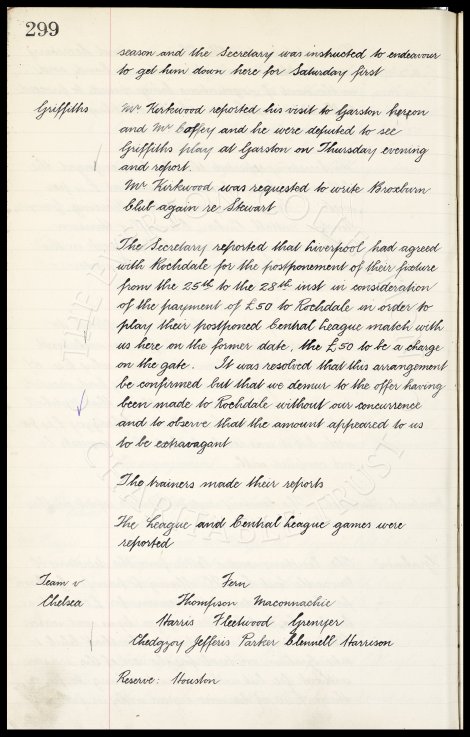 299
season and the Secretary was instructed to endeavour
to get him down here for Saturday first
Griffiths
Mr Kirkwood reported his visit to Garston hereon
and Mr Coffey and he were deputed to see
Griffiths play at Garston on Thursday evening
and report.
Mr Kirkwood was requested to write Broxburn
Club again re Stewart
The Secretary reported that Liverpool had agreed
with Rochdale for the postponement of their fixture
from the 25th to the 28th inst in consideration
of the payment of £50 to Rochdale in order to
play their postponed Central League match with
us here on the former date, the £50 to be a charge
on the gate. It was resolved that this arrangement
be confirmed but that we demur to the offer having
been made to Rochdale without our concurrence
and to observe that the amount appeared to us
to be extravagant
The trainers made their reports
The League and Central League games were
reported
Team v
Chelsea
Fern
Thompson Maconnachie
Harris Fleetwood Grenyer
Chedgzoy Jefferis Parker Clennell Harrison
Reserve: Houston
CHARITABLE TRUST